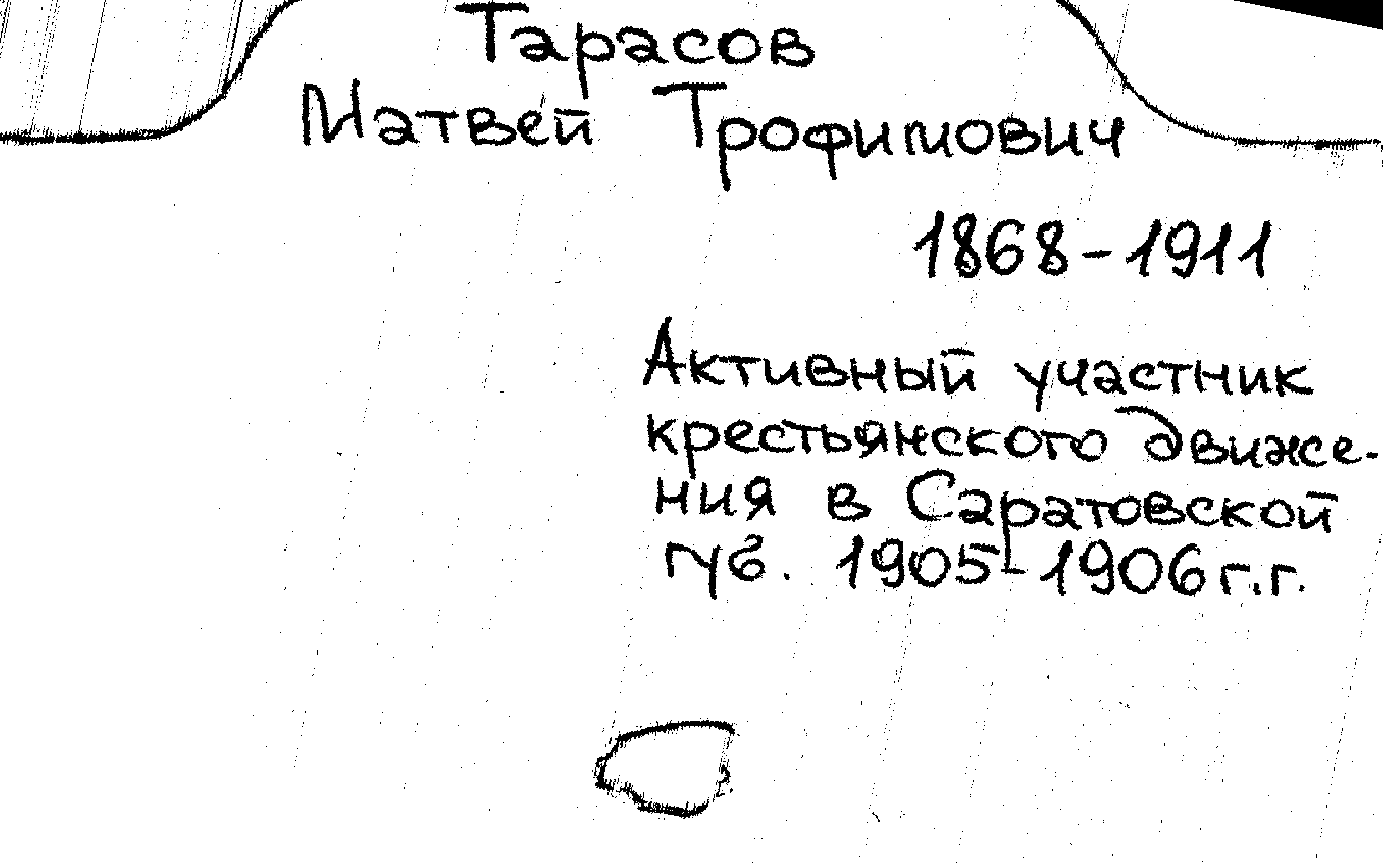 Тарасов
Матвей Трофимович
1868-1911
Активный участник
крестьянского движе-
ния в Саратовской
губ. 1905-1906 г.г.